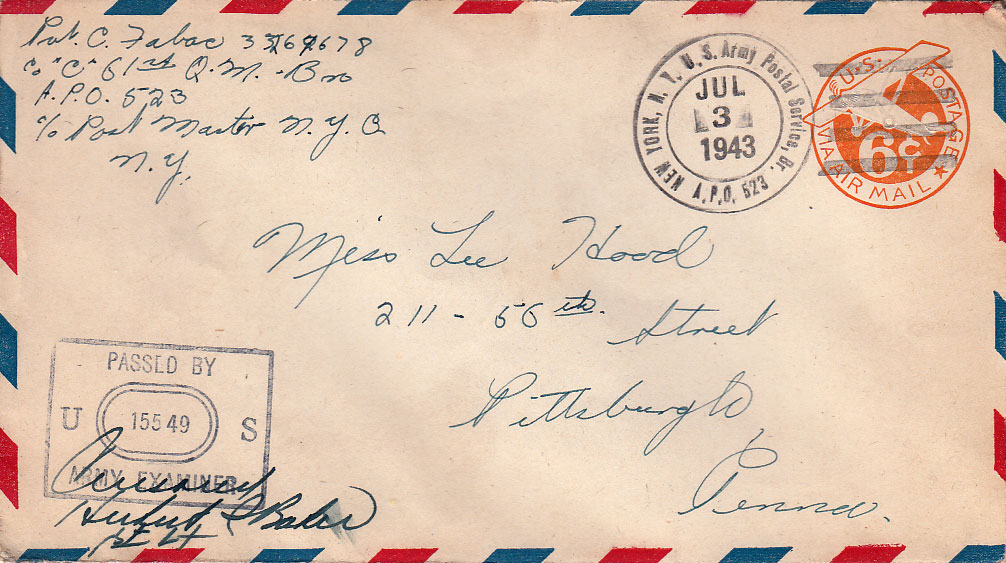 Pvt. C. Fabac 33767678
Co "C" 61st Q.M. Bn
A.P.O. 523
c/o Post Master N.Y.C
N.Y.
NEW YORK, N. Y. U. S. Army Postal Service, Br.
JUL
3
1943
A.P.O. 523
U.S. POSTAGE
6¢
VIA AIR MAIL
Miss Lee Hood
211 - 56 th. Street
Pittsburgh,
Penna.
PASSED BY
U 15549 S
ARMY EXAMINER
Baker
1st Lt